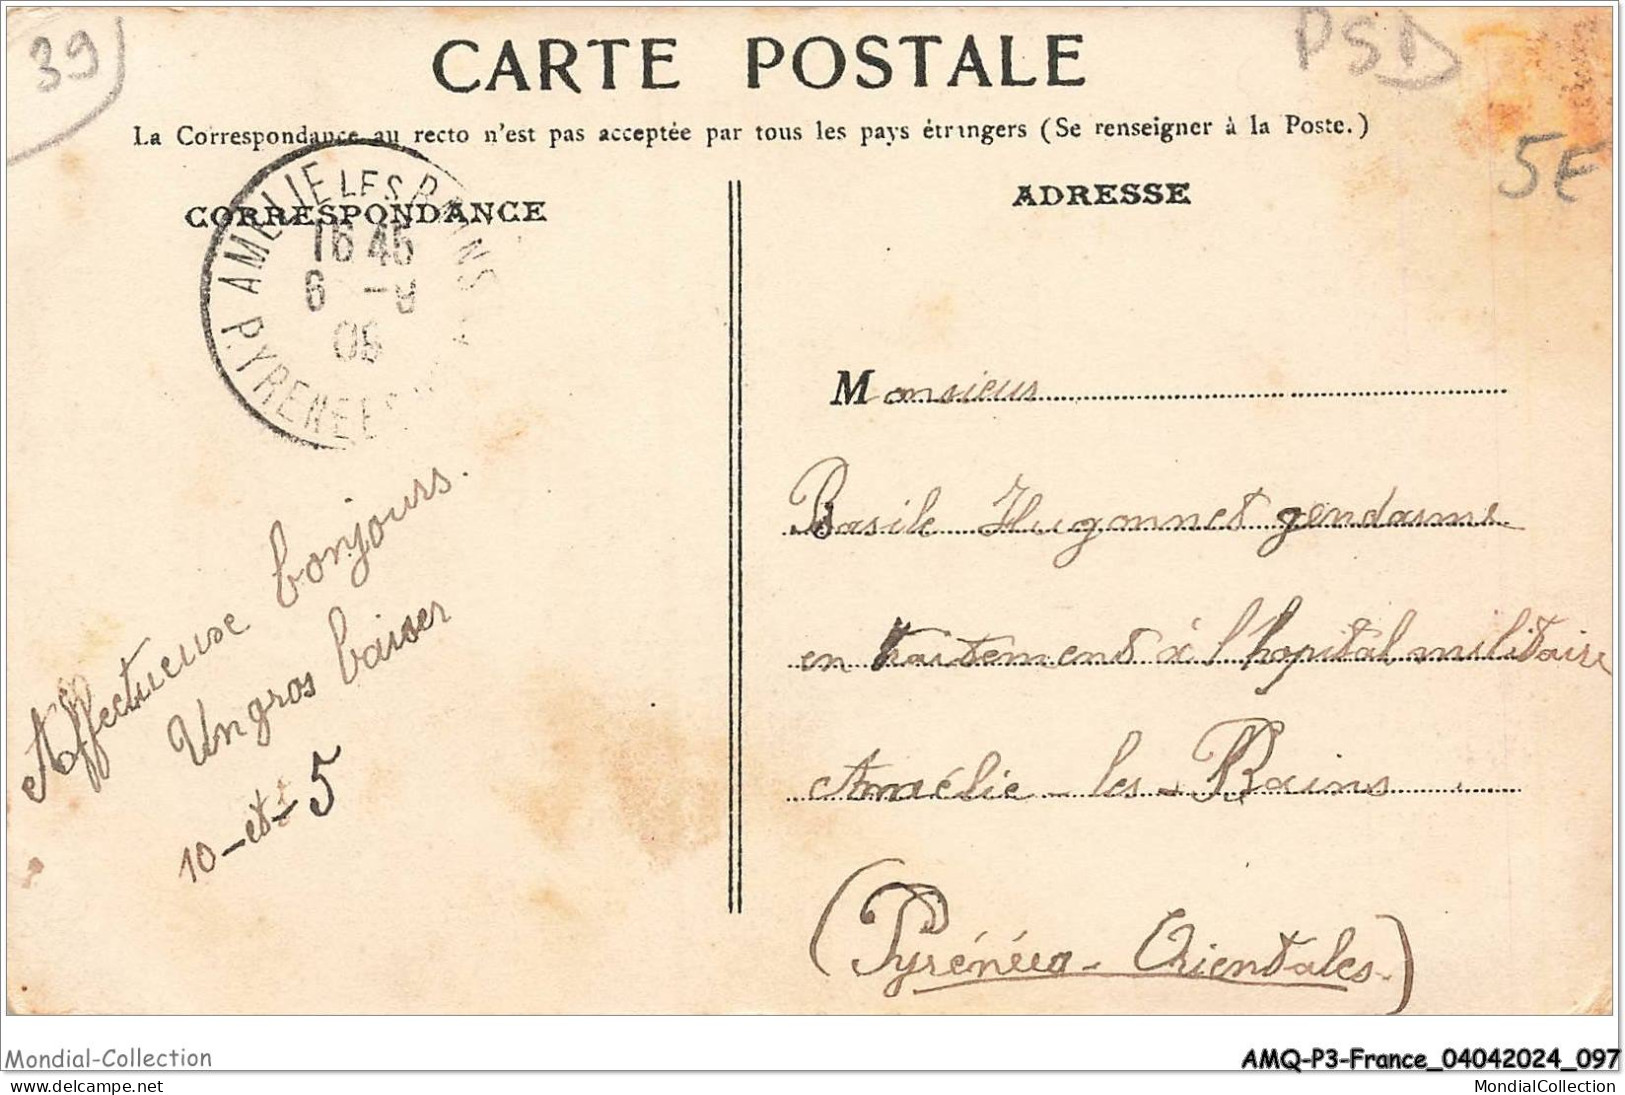 39
PSD
CARTE POSTALE
La Correspondance au recto n'est pas acceptée par tous les pays étrangers (Se renseigner à la Poste.)
5E
CORRESPONDANCE
ADRESSE
AMELIE LES BAINS
16 45
6 -9
PYRENEES
Monsieur
Basile Hugonnet gendarme
en traitement à l'hopital militaire
Amélie-les-Bains
(Pyrénées-Orientales)
Affectueuse bonjours.
Un gros baiser
10-et-5
Mondial-Collection
AMQ-P3-France_04042024_097
delcampe.net
MondialCollection